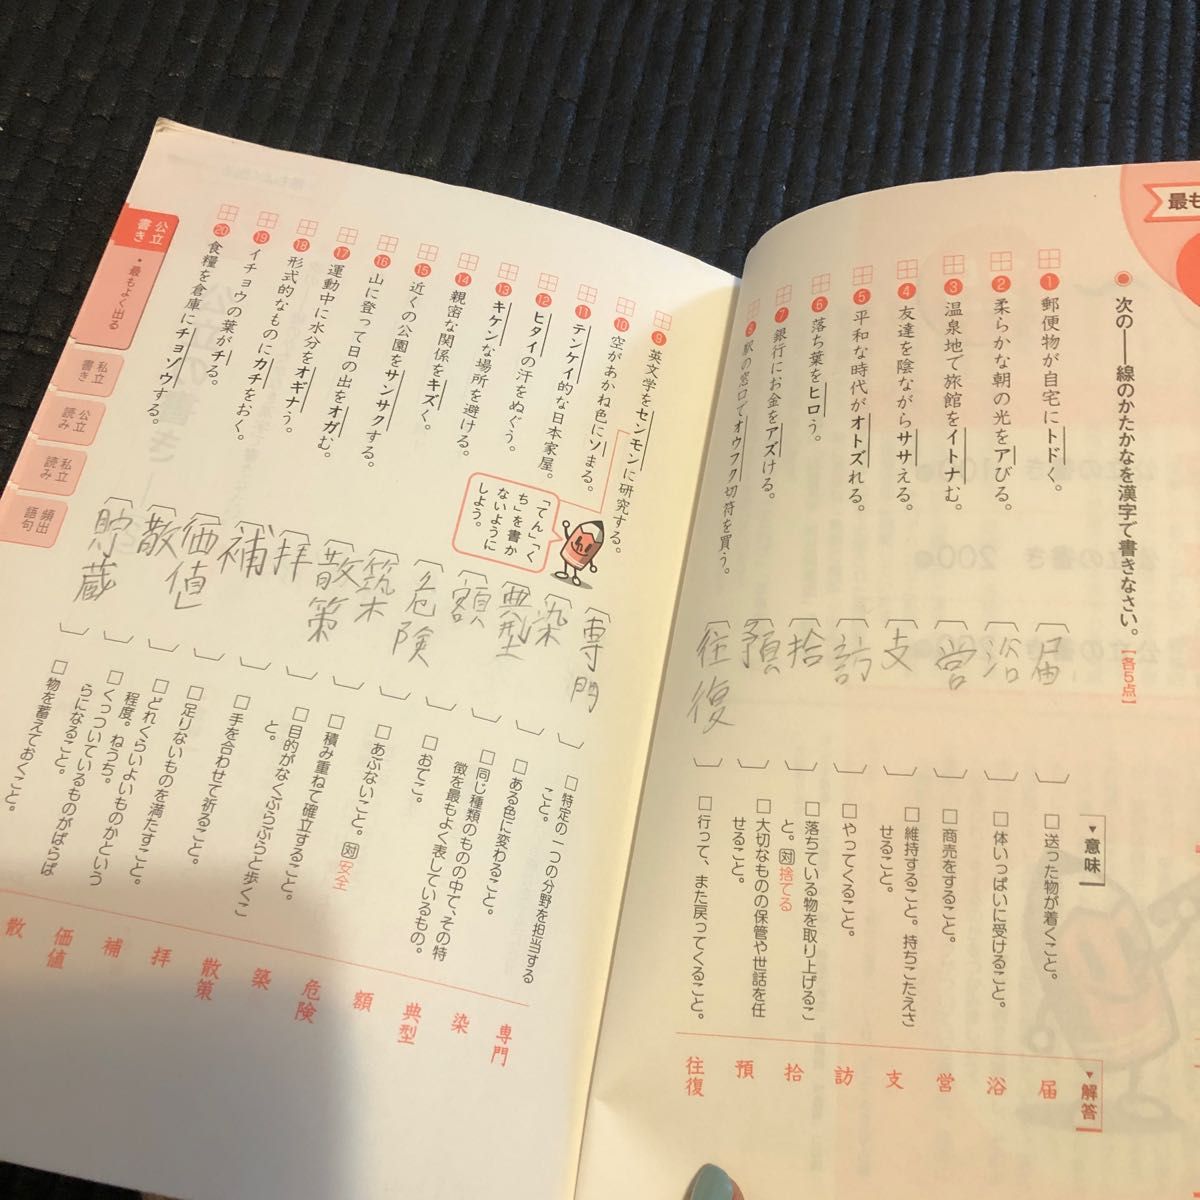 最も
次の――線のかたかなを漢字で書きなさい。【各5点】
1 郵便物が自宅にトドく。
2 柔らかな朝の光をアびる。
3 温泉地で旅館をイトナむ。
4 友達を陰ながらササえる。
5 平和な時代がオトズれる。
6 落ち葉をヒロう。
7 銀行にお金をアズける。
8 駅の窓口でオウフク切符を買う。
届
浴
営
支
訪
拾
預
往復
▼意味
□送った物が着くこと。
□体いっぱいに受けること。
□商売をすること。
□維持すること。持ちこたえさ
せること。
□やってくること。
□落ちている物を取り上げるこ
と。対捨てる
□大切なものの保管や世話を任
せること。
□行って、また戻ってくること。
▼解答
届
浴
営
支
訪
拾
預
往復
9 英文学をセンモンに研究する。
10 空があかね色にソまる。
11 テンケイ的な日本家屋。
12 ヒタイの汗をぬぐう。
13 キケンな場所を避ける。
14 親密な関係をキズく。
15 近くの公園をサンサクする。
16 山に登って日の出をオガむ。
17 運動中に水分をオギナう。
18 形式的なものにカチをおく。
19 イチョウの葉がチる。
20 食糧を倉庫にチョゾウする。
「てん」「く
ち」を書か
ないように
しよう。
専門
染
典型
額
危険
築
散策
拝
補
価値
散
貯蔵
□特定の一つの分野を担当する
こと。
□ある色に変わること。
□同じ種類のものの中で、その特
徴を最もよく表しているもの。
□おでこ。
□あぶないこと。対安全
□積み重ねて確立すること。
□目的がなくぶらぶらと歩くこ
と。
□手を合わせて祈ること。
□足りないものを満たすこと。
□どれくらいよいものかという
程度。ねうち。
□くっついているものがばらば
らになること。
□物を蓄えておくこと。
専門
染
典型
額
危険
築
散策
拝
補
価値
散
公立
書き
・最もよく出る
私立
書き
公立
読み
私立
読み
頻出
語句